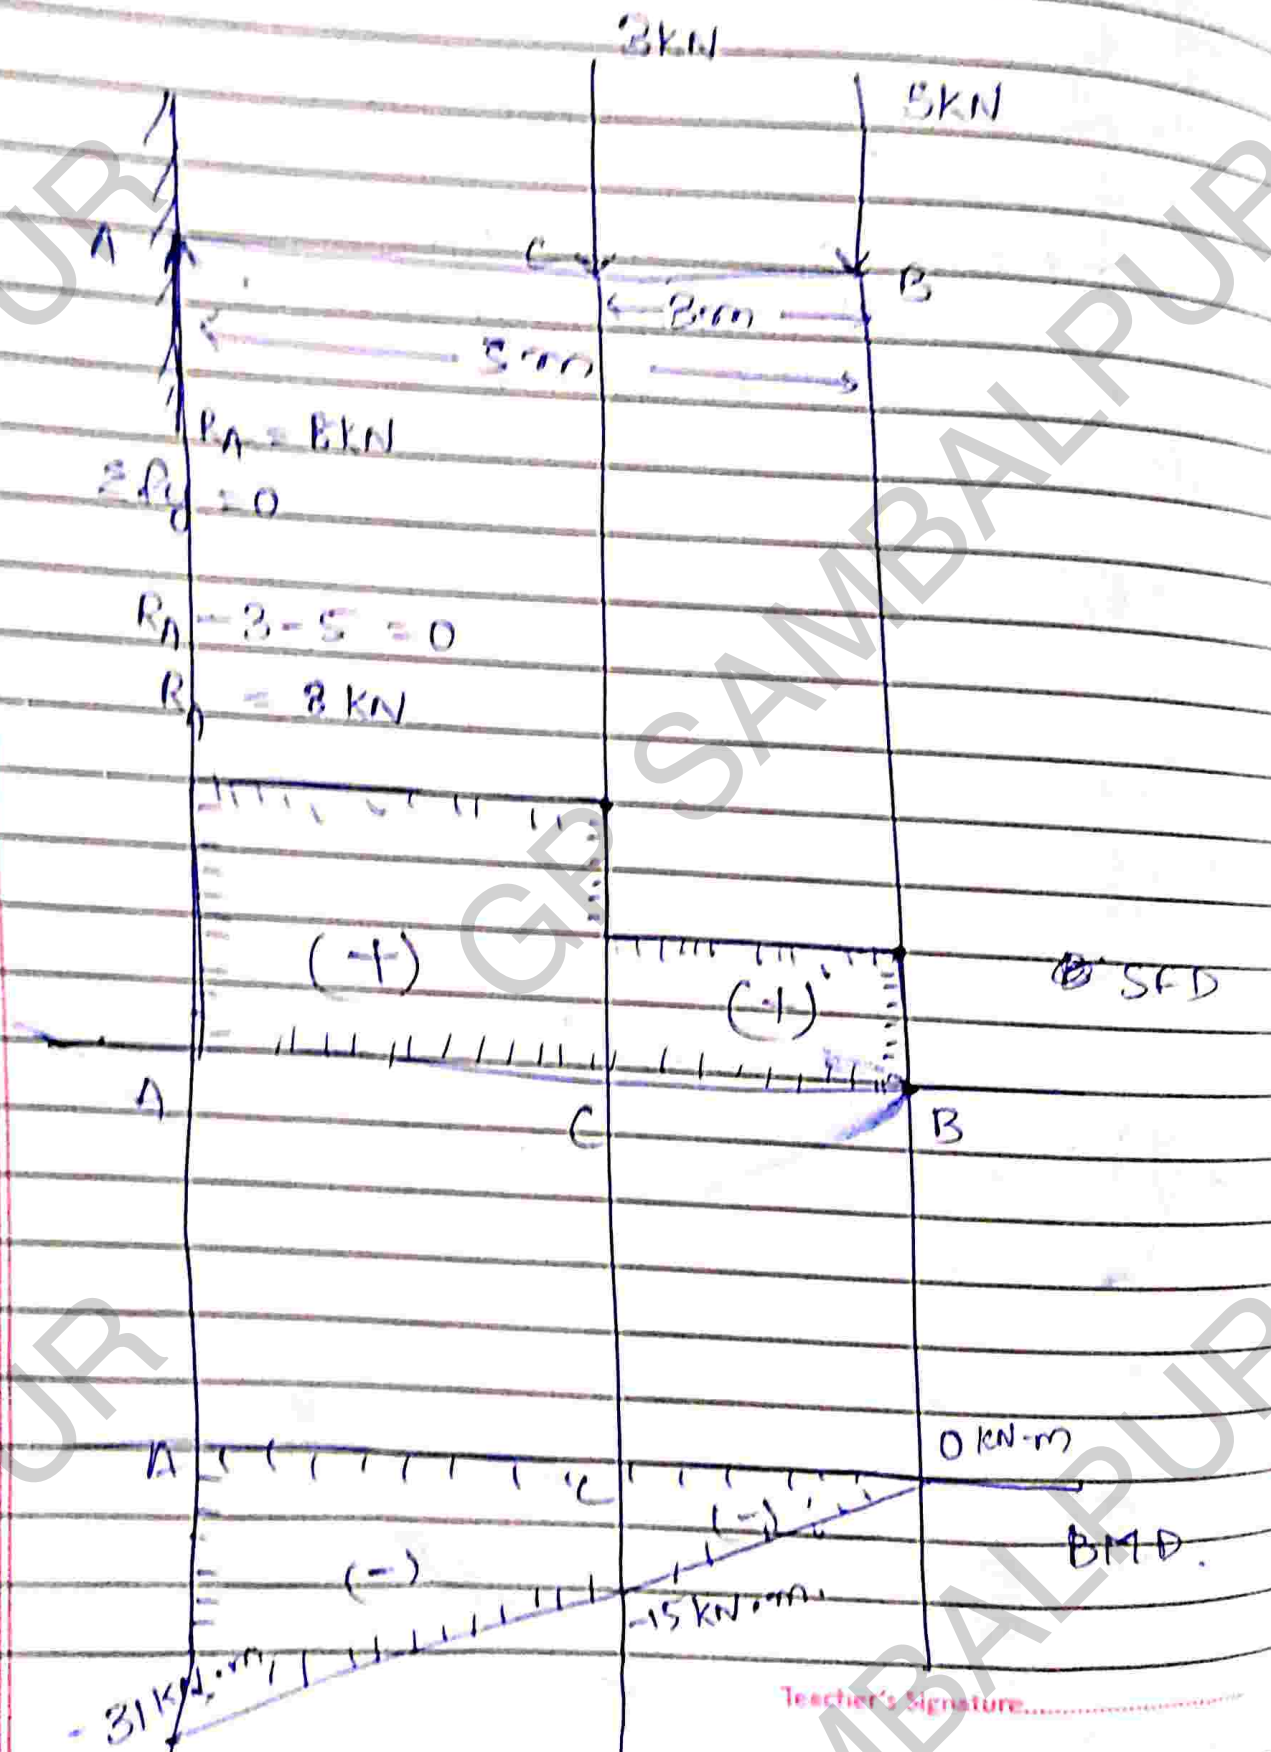 3KN
5KN
A
C
B
3m
5m
RA = 8KN
Σfy = 0
RA - 3 - 5 = 0
RA = 8 KN
(+)
(+)
SFD
A
C
B
0 KN-m
A
C
(-)
(-)
BMD.
-15 KN.m.
-31 KN.m
Teacher's Signature
GP SAMBALPUR
UR
UR
MBALPUR